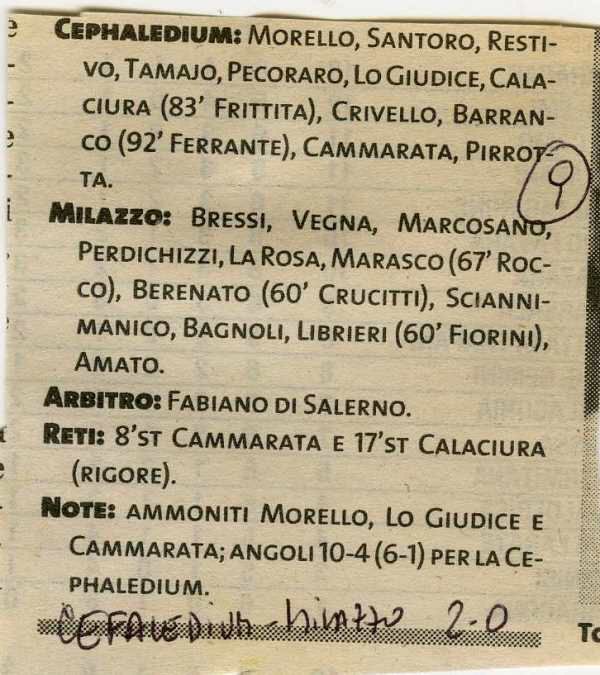 CEPHALEDIUM: MORELLO, SANTORO, RESTI-
VO, TAMAJO, PECORARO, LO GIUDICE, CALA-
CIURA (83' FRITTITA), CRIVELLO, BARRAN-
CO (92' FERRANTE), CAMMARATA, PIRROT-
TA.
9
MILAZZO: BRESSI, VEGNA, MARCOSANO,
PERDICHIZZI, LA ROSA, MARASCO (67' ROC-
CO), BERENATO (60' CRUCITTI), SCIANNI-
MANICO, BAGNOLI, LIBRIERI (60' FIORINI),
AMATO.
ARBITRO: FABIANO DI SALERNO.
RETI: 8'ST CAMMARATA E 17'ST CALACIURA
(RIGORE).
NOTE: AMMONITI MORELLO, LO GIUDICE E
CAMMARATA; ANGOLI 10-4 (6-1) PER LA CE-
PHALEDIUM.
CEFALEDIUM - MILAZZO 2-0